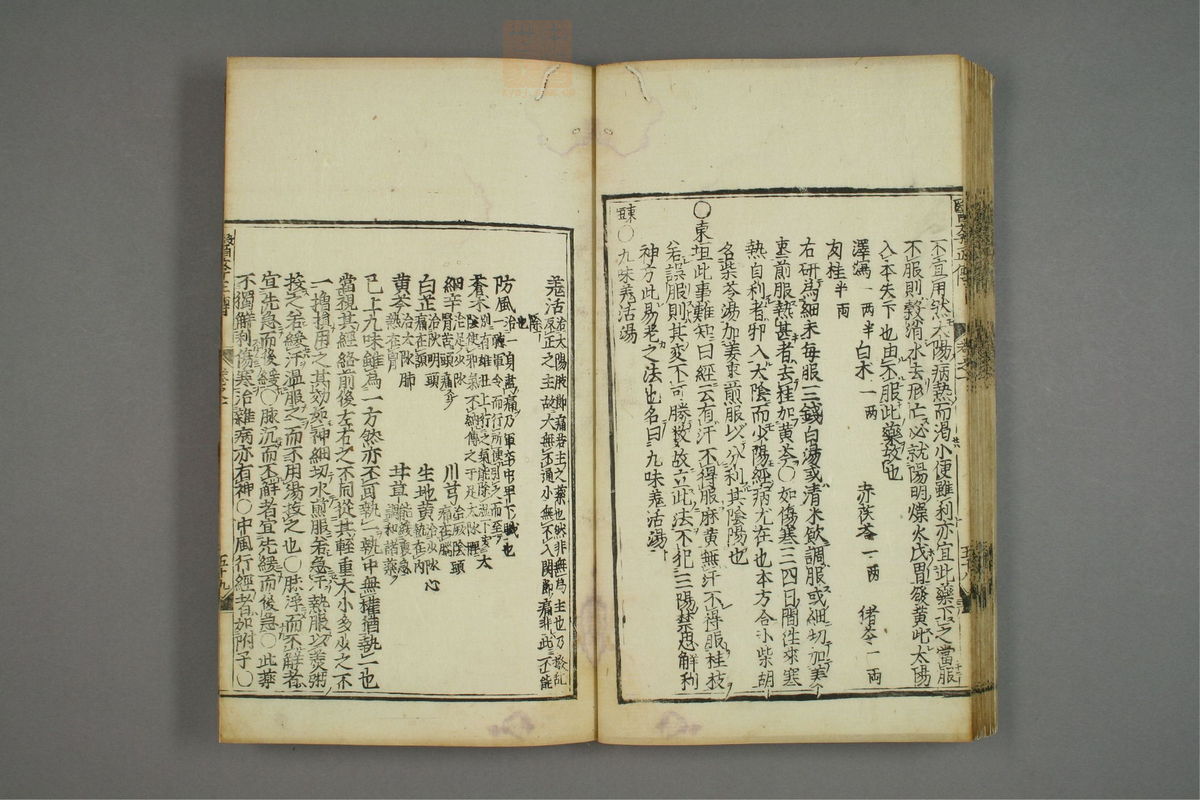 不宜用然太陽病熱而渇小便雖利亦宜此藥下之當服
不服則穀消水去形亡必就陽明燥火戊胃發黄此太陽
入本失下也由不服此藥故也
澤瀉一兩半 白朮一兩 赤茯苓一兩 猪苓一兩
肉桂半兩
右研爲細末毎服三錢白湯或清米飲調服或細切加姜
棗煎服熱甚者去桂加黄芩○如傷寒三四日間往來寒
熱自利者邪入太陰而少陽經病尤在也本方合小柴胡
名柴苓湯加姜棗煎服以分利其陰陽也
○東垣此事難知曰經云有汗不得服麻黄無汗不得服桂枝
若誤服則其変不可勝救故立此法不犯三陽禁忌解利
神方此易老之法也名曰九味羗活湯
東垣○九味羗活湯
羗活 治太陽肢節痛君主之藥也然非無爲主也乃撥乱
反正之主故大無不通小無不入関節痛非此不能
除也
防風 治一身盡痛乃軍卒中卑下職也
一聴軍令而行所使引之而至
蒼朮 別有雄壮上行之氣能除湿下安太
陰使邪氣不納傳之于足太陰脾
細辛 治足少陰
腎苦頭痛
川芎 治厥陰頭
痛在脳
白芷 治陽明頭
痛在額
生地黄 治少陰心
熱在内
黄芩 治太陰肺
熱在胸
甘草 能緩裏急
調和諸藥
已上九味雖爲一方然亦不可執一執中無權猶執一也
當視其經絡前後左右之不同從其輕重大小多少之不
一増損用之其効如神細切水煎服若急汗熱服以羮粥
投之若緩汗温服之而不用湯投之也○脉浮而不解者
宜先急而後緩○脉沉而不解者宜先緩而後急○此藥
不獨解利傷寒治雜病亦有神○中風行經者加附子○
五十九